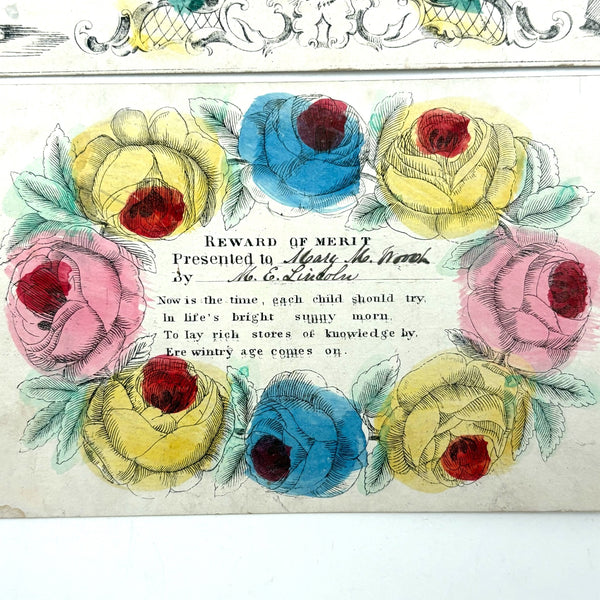 REWARD OF MERIT
Presented to Mary M. Wood
By M. E. Lincoln
Now is the time, each child should try.
In life's bright sunny morn
To lay rich stores of knowledge by.
Ere wintry age comes on.